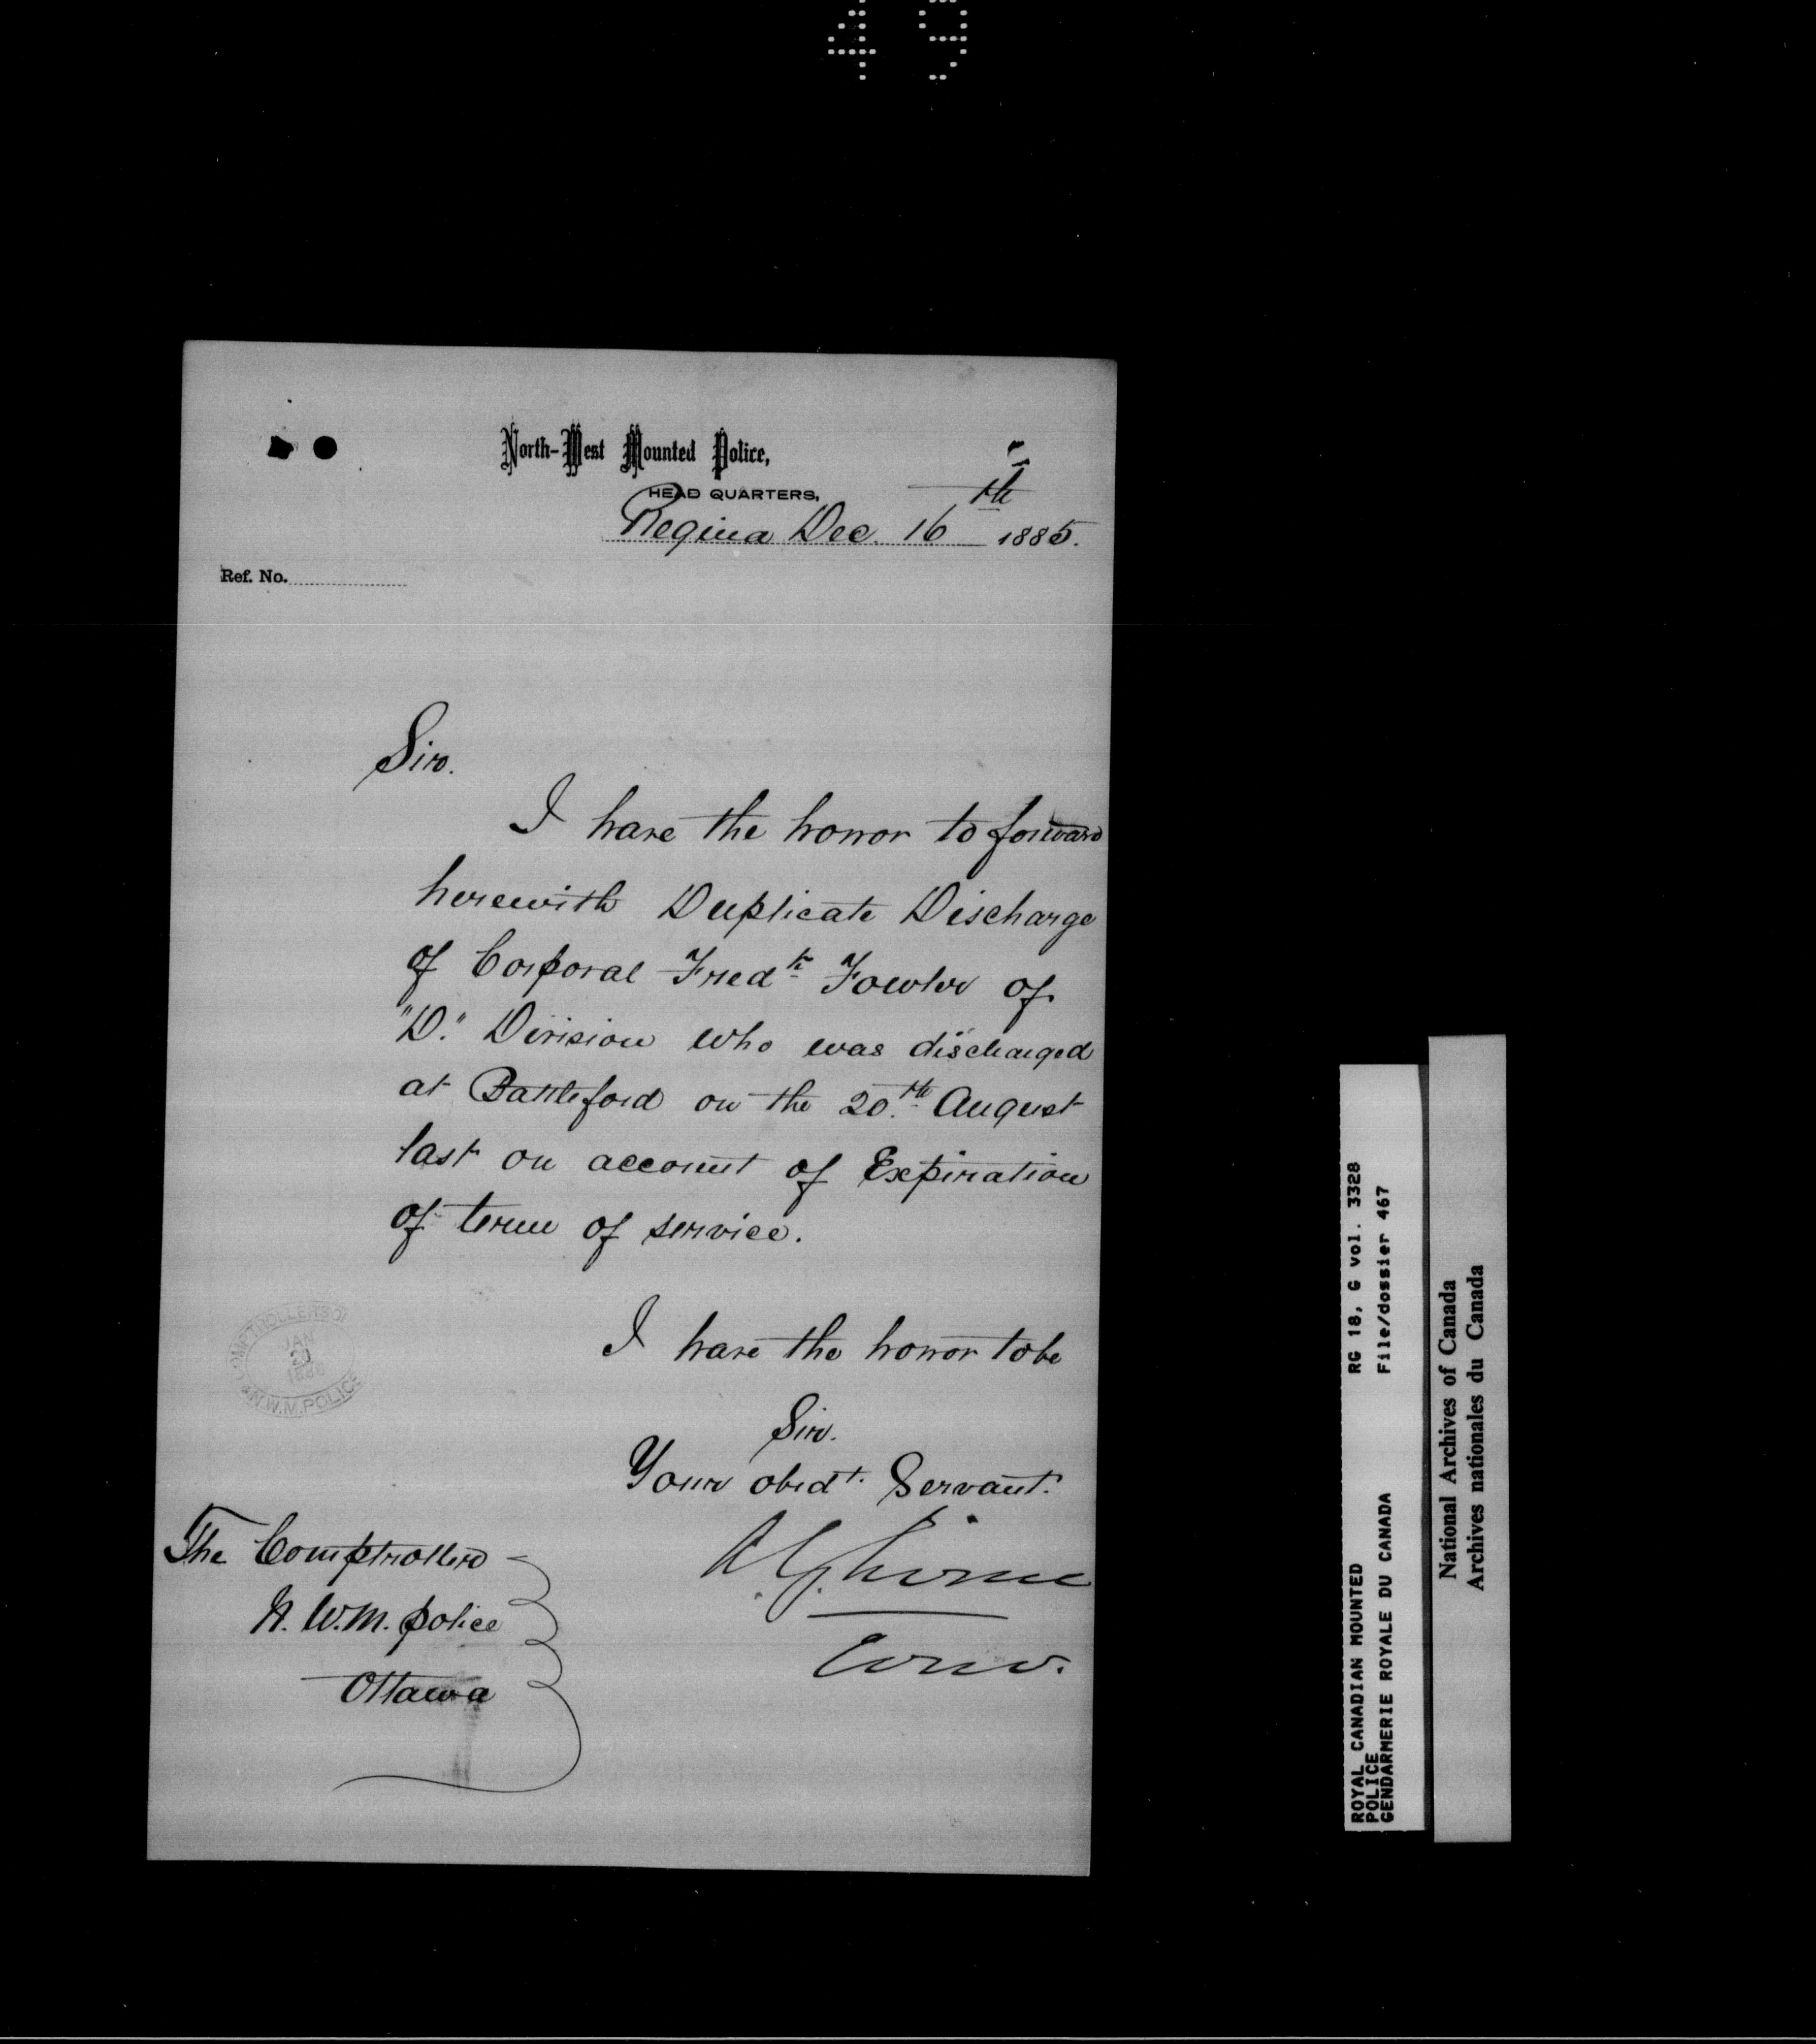 49
North-West Mounted Police,
HEAD QUARTERS,
Regina Dec. 16th 1885.
Ref. No.
Sir.
I have the honor to forward
herewith Duplicate Discharge
of Corporal Fredk Fowler of
"D." Division who was discharged
at Battleford on the 20.th August
last on account of Expiration
of term of service.
I have the honor to be
Sir.
Your obedt. Servant.
Comr.
The Comptroller
N.W.M. police
Ottawa
COMPTROLLERS OF
JAN
N.W.M.POLICE
ROYAL CANADIAN MOUNTED
POLICE
GENDARMERIE ROYALE DU CANADA
RG 18, G vol. 3328
File/dossier 467
National Archives of Canada
Archives nationales du Canada